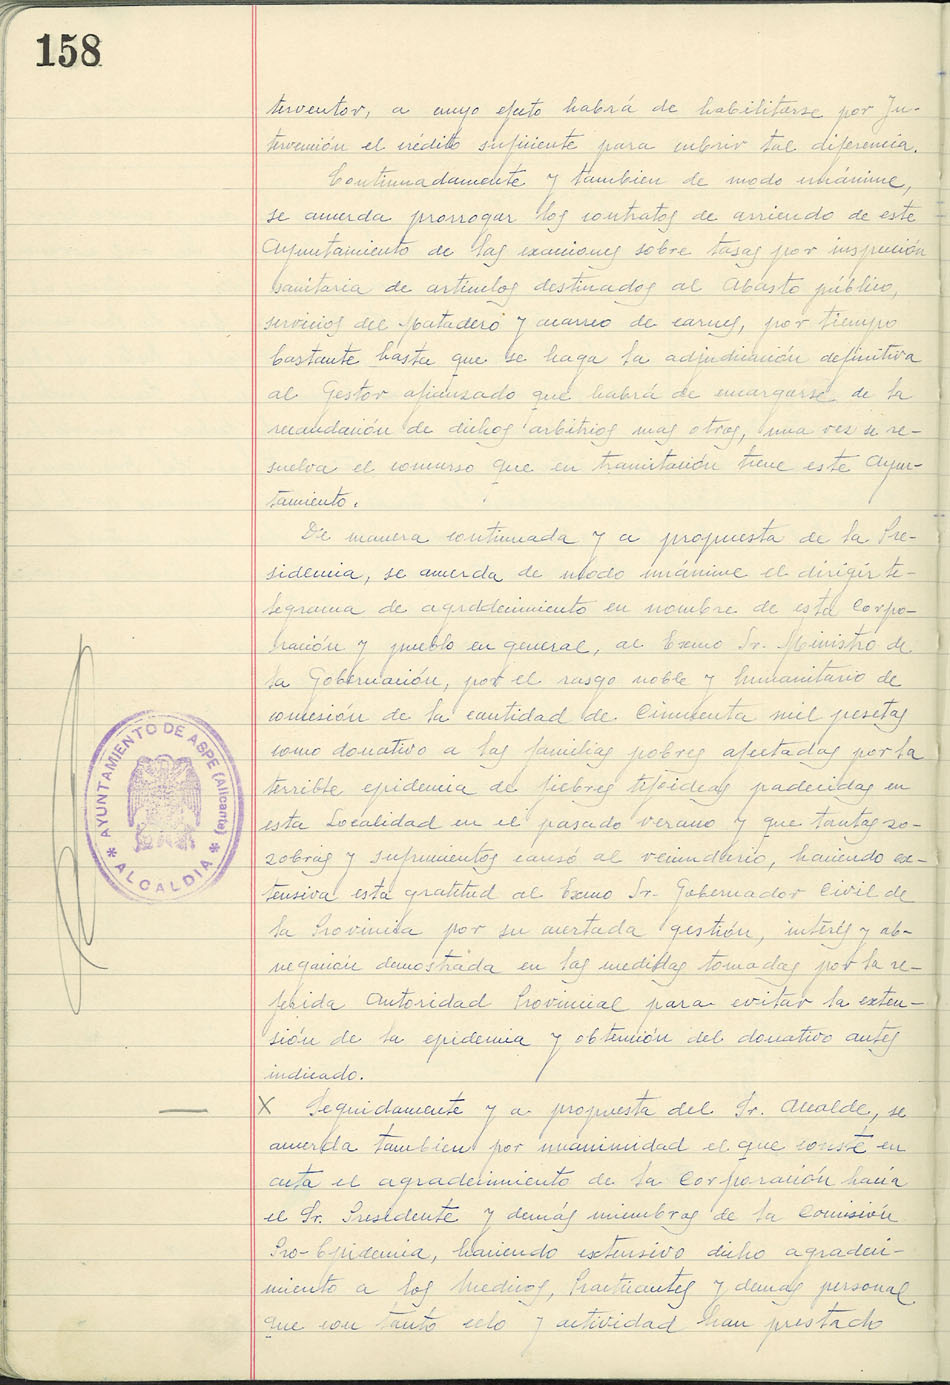 158
terventor, a cuyo efecto habrá de habilitarse por In-
tervención el crédito suficiente para cubrir tal diferencia.
Continuadamente y tambien de modo unánime,
se acuerda prorrogar los contratos de arriendo de este
Ayuntamiento de las exacciones sobre tasas por inspección
sanitaria de articulos destinados al Abasto público,
servicios del Matadero y acarreo de carnes, por tiempo
bastante hasta que se haga la adjudicación definitiva
al Gestor afianzado que habrá de encargarse de la
recaudación de dichos arbitrios mas otros, una vez se re-
suelva el concurso que en tramitación tiene este Ayun-
tamiento.
De manera continuada y a propuesta de la Pre-
sidencia, se acuerda de modo unánime el dirigir te-
legrama de agradecimiento en nombre de esta Corpo-
ración y pueblo en general, al Excmo Sr. Ministro de
la Gobernación, por el rasgo noble y humanitario de
concesión de la cantidad de Cincuenta mil pesetas
como donativo a las familias pobres afectadas por la
terrible epidemia de fiebres tifoideas padecidas en
esta Localidad en el pasado verano y que tantas zo-
zobras y sufrimientos causó al vecindario, haciendo ex-
tensiva esta gratitud al Excmo Sr. Gobernador Civil de
la Provincia por su acertada gestión, interés y ab-
negación demostrada en las medidas tomadas por la re-
ferida Autoridad Provincial para evitar la exten-
sión de la epidemia y obtención del donativo antes
indicado.
X Seguidamente y a propuesta del Sr. Alcalde, se
acuerda tambien por unanimidad el que conste en
acta el agradecimiento de la Corporación hacia
el Sr. Presidente y demás miembros de la Comisión
Pro-Epidemia, haciendo extensivo dicho agradeci-
miento a los Medicos, Practicantes y demas personal
que con tanto celo y actividad han prestado
AYUNTAMIENTO DE ASPE (Alicante)
* ALCALDIA *